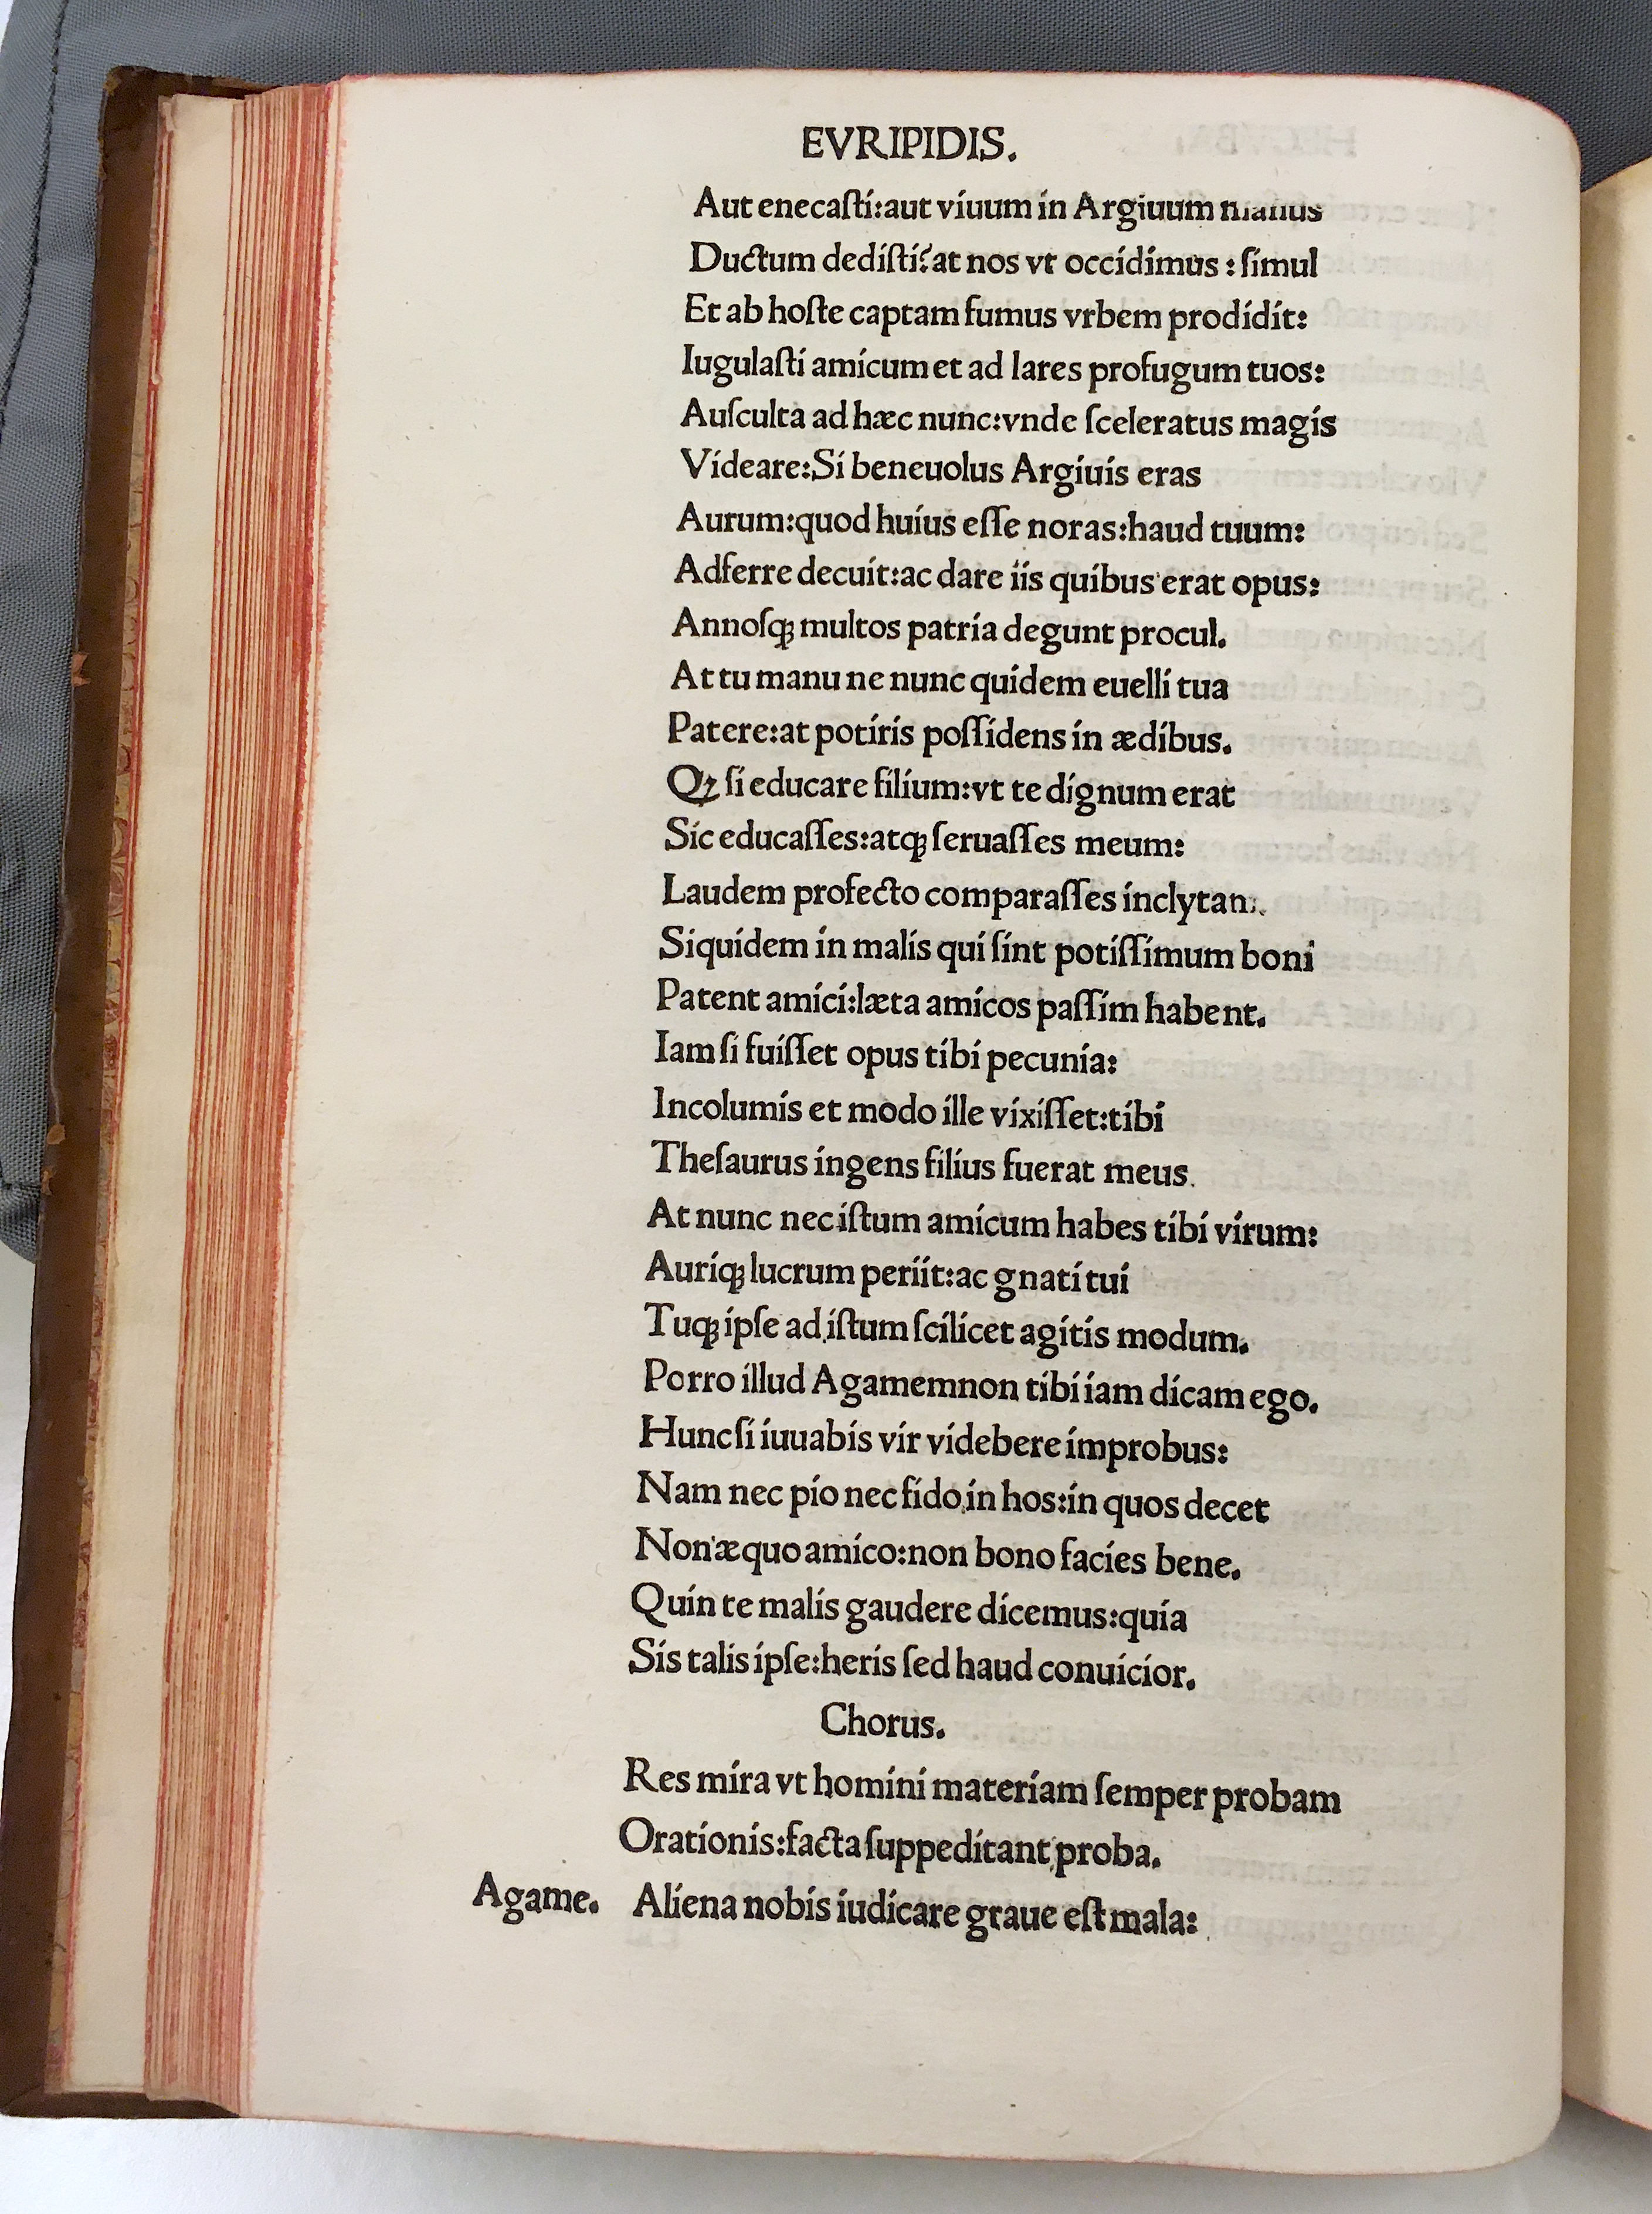 EVRIPIDIS.
Aut enecaſti:aut viuum in Argiuum manus
Ductum dediſti?at nos vt occidimus : ſimul
Et ab hoſte captam fumus vrbem prodidit:
Iugulaſti amicum et ad lares profugum tuos:
Auſculta ad hæc nunc:vnde ſceleratus magis
Videare:Si beneuolus Argiuis eras
Aurum:quod huius eſſe noras:haud tuum:
Adferre decuit:ac dare iis quibus erat opus:
Annoſqꝫ multos patria degunt procul.
At tu manu ne nunc quidem euelli tua
Patere:at potiris poſſidens in ædibus.
Qꝫ ſi educare filium:vt te dignum erat
Sic educaſſes:atqꝫ ſeruaſſes meum:
Laudem profecto comparaſſes inclytam.
Siquidem in malis qui ſint potiſſimum boni
Patent amici:læta amicos paſſim habent.
Iam ſi fuiſſet opus tibi pecunia:
Incolumis et modo ille vixiſſet:tibi
Theſaurus ingens filius fuerat meus.
At nunc nec iſtum amicum habes tibi virum:
Auriqꝫ lucrum periit:ac gnati tui
Tuqꝫ ipſe ad iſtum ſcilicet agitis modum.
Porro illud Agamemnon tibi iam dicam ego.
Hunc ſi iuuabis vir videbere improbus:
Nam nec pio nec fido in hos:in quos decet
Non æquo amico:non bono facies bene.
Quin te malis gaudere dicemus:quia
Sis talis ipſe:heris ſed haud conuicior.
Chorus.
Res mira vt homini materiam ſemper probam
Orationis:facta ſuppeditant proba.
Agame. Aliena nobis iudicare graue eſt mala: